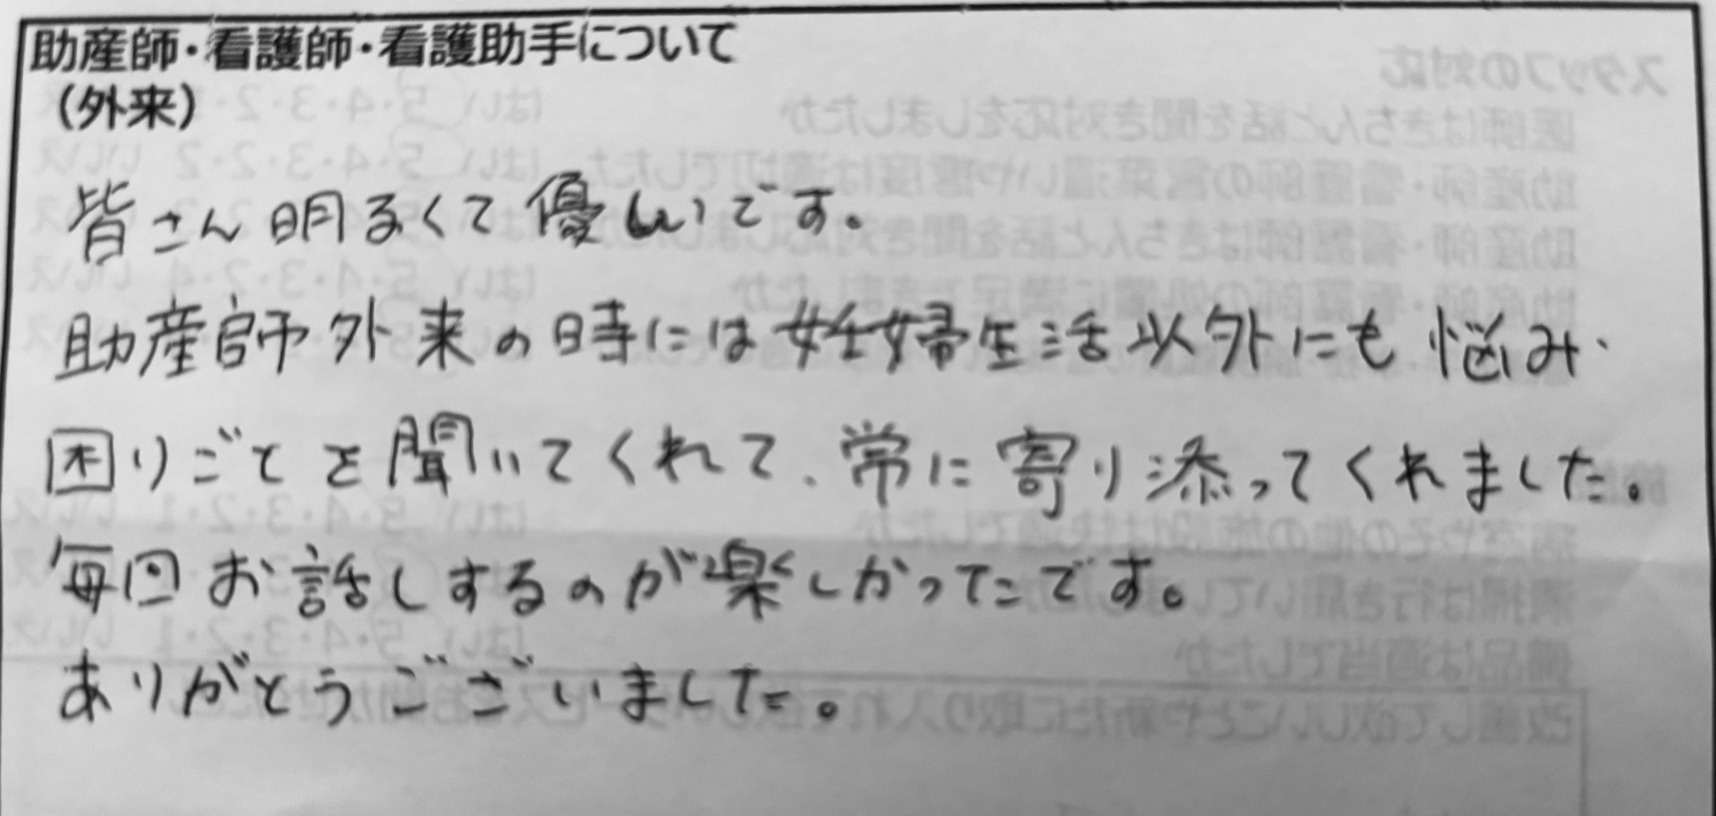 助産師・看護師・看護助手について
（外来）
皆さん明るくて優しいです。
助産師外来の時には妊婦生活以外にも悩み、
困りごとを聞いてくれて、常に寄り添ってくれました。
毎回お話しするのが楽しかったです。
ありがとうございました。